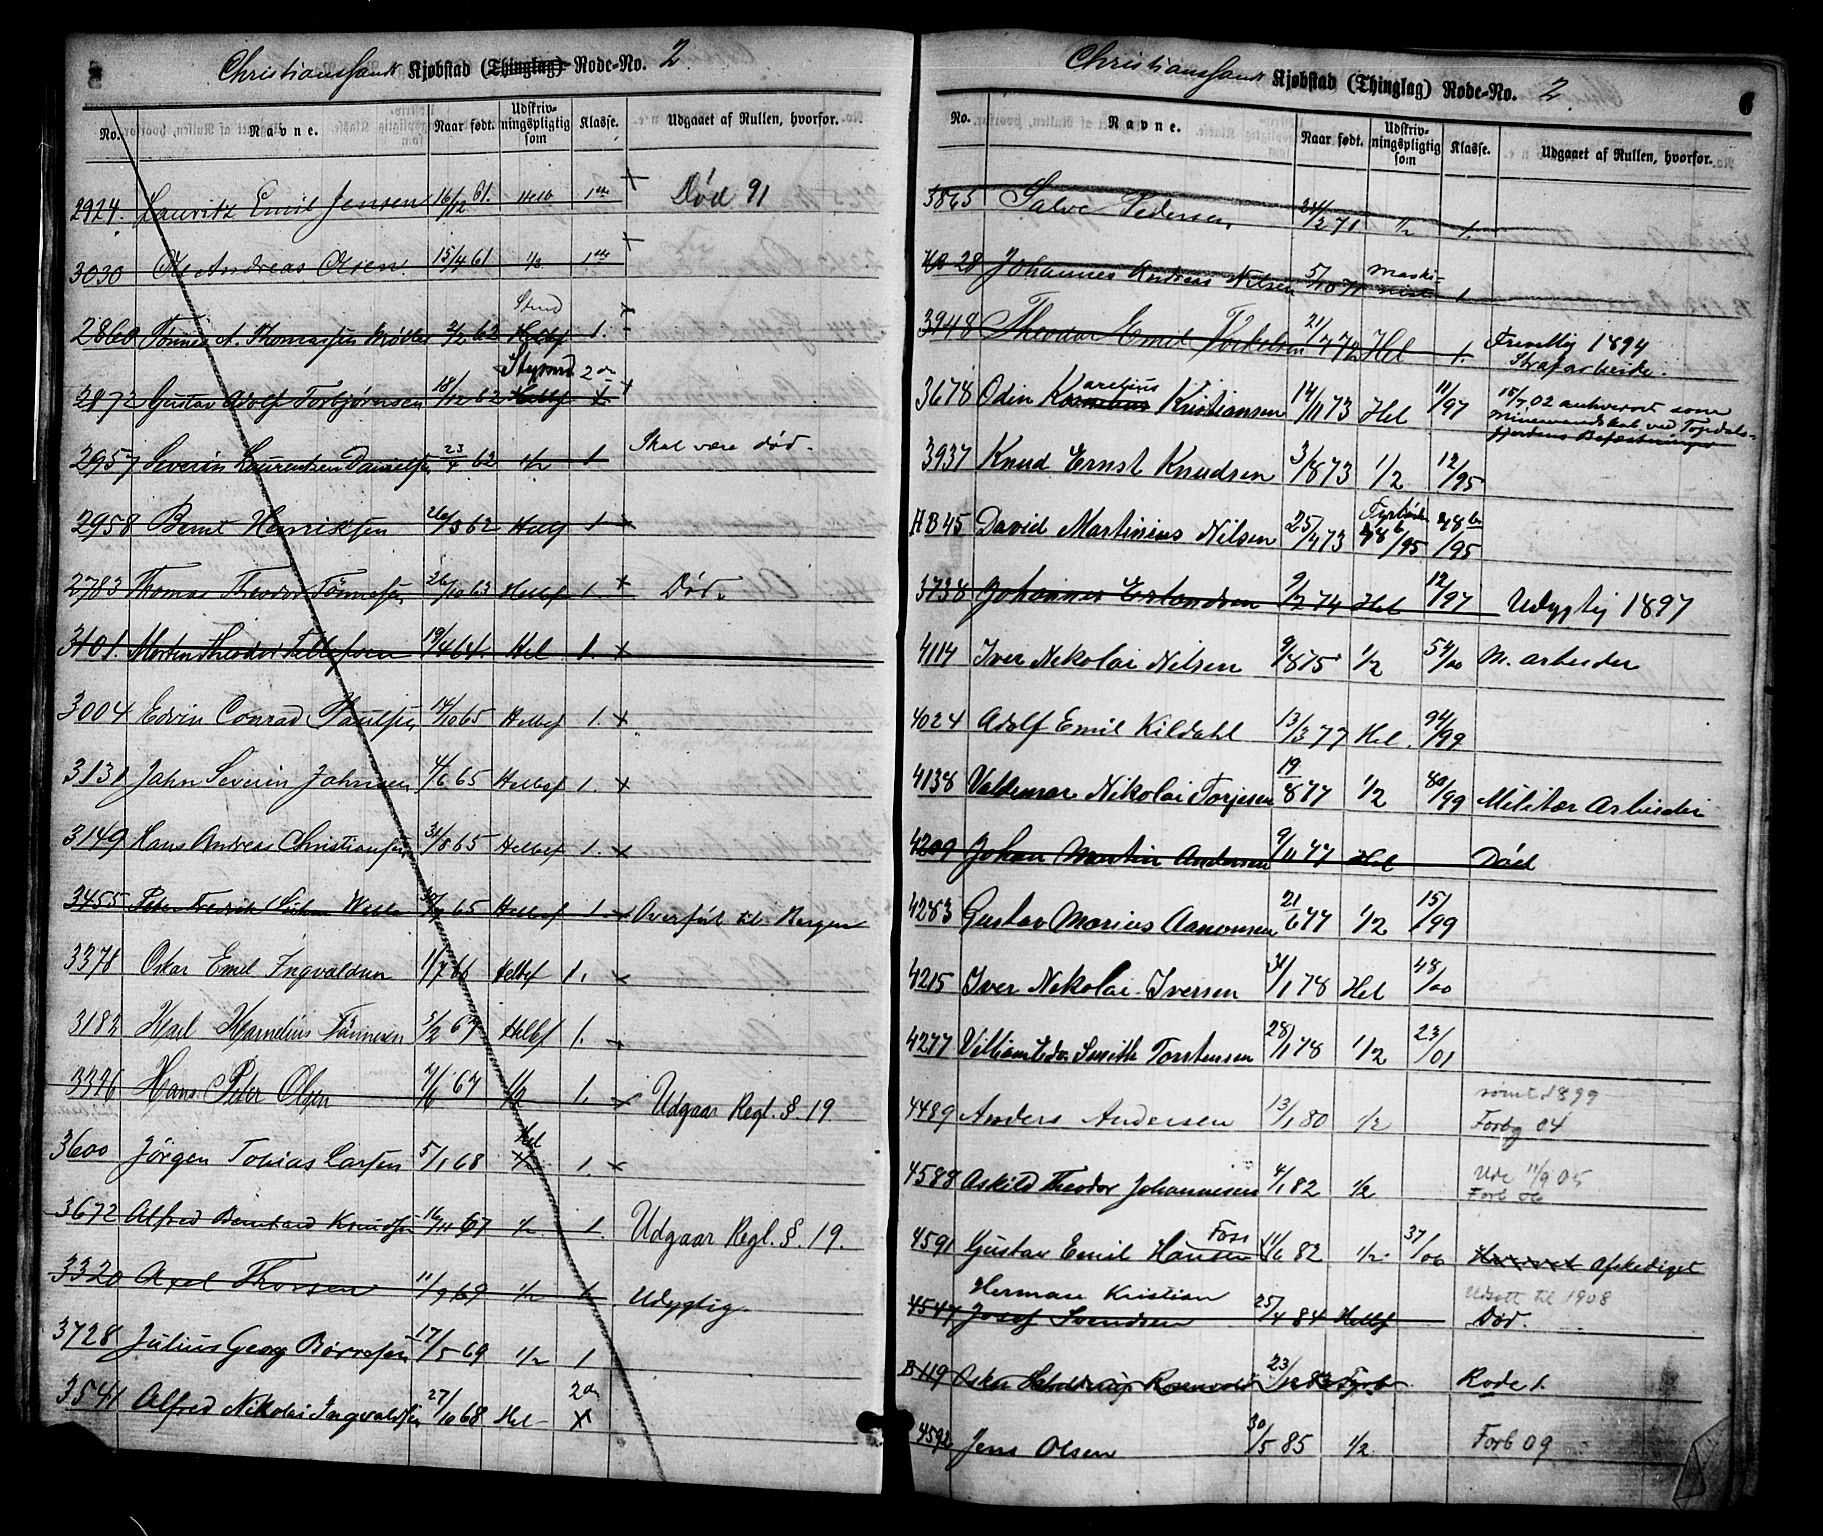 Christianssand Kjøbstad (Thinglag) Rode-No. 2
No. Navne. Naar født. Udskriv-ningspligtig som Klasse. Udgaaet af Rullen, hvorfor.
2924. Lauritz Emil Jensen 16/12 61. 1ste Død 91
3030 Ole Andreas Olsen 15/4 61 1/2 1ste
2860 Tønnes A. Thomassen 2/2 62 Helbf 1.
Styrmd
2872 Gustav Adolf Torbjørnsen 18/12 62 Helbf 2den
2957 Severin Laurentsen Danielsen 23/4 62 1/2 1 Skal være død.
2958 Bernt Henriksen 26/3 62 1
2783 Thomas Theodor Tønnesen 26/10 63 Helbf 1. Død.
3101. Morten Theodor Tellefsen 19/4 64. Hel 1.
3004 Edvin Conrad Paulsen 17/10 65 Helbef 1.
3131 John Severin Johnsen 4/6 65 Helbef 1.
3149 Hans Andreas Christiansen 31/8 65 Helbef 1.
3455 Peter Fredrik 65 Helbef 1. Overført til Bergen
3378 Oskar Emil Ingvaldsen 1/7 66 Helbef 1.
3183 Karl Kornelius Tønnesen 3/2 67 Helbf 1.
3376 Hans Peter Olsen 7/6 67 1/2 1. Udgaar Regl. § 19
3600 Jörgen Tobias Carsen 5/1 68 Hel 1.
3672 Alfred Bernhard Knudsen 16/11 67 1/2 1. Udgaar Regl. §. 19.
3320 Axel Thorsen 11/9 69 1/2 1. Udygtig
3728 Julius Georg Børresen 17/5 69 1/2 1
3541 Alfred Nikolai Ingvaldsen 27/10 68 Hel 2den
Christianssand Kjøbstad (Thinglag) Rode-No. 2. 6
No. Navne. Naar født. Udskriv-ningspligtig som Klasse. Udgaaet af Rullen, hvorfor.
3865 Salve Pedersen 24/2 71 1/2 1.
28 Johannes Andreas Nilsen 5/10 71 Maski-nist 1.
3948 Theodor Emil Torkelsen 21/7 72 Hel 1. Frivillig 1894
Strafarbeide.
3678 Odin Karelius Kristiansen 14/11 73 Hel 11/97 15/7 02 anhveret som
minemandskab ved Topdals-
fjordens Befæstninger
3937 Knud Ernst Knudsen 3/8 73 1/2 12/95
HB 45 David Martinius Nilsen 25/7 73 Fyrbød 48b/95 48b/95
3738 Johannes Erlandsen 9/2 74 Hel 12/97 Udygtig 1897
4114 Iver Nikolai Nilsen 9/8 75 1/2 54/00 M. arbeider
4024 Adolf Emil Kildahl 13/3 77 Hel. 94/99
4138 Valdemar Nikolai Torjesen 19/8 77 1/2 80/99 Militær Arbeider
4209 Johan Martin Andersen 9/11 77 Hel Död
4283 Gustav Marius Aanonsen 21/6 77 1/2 15/99
4215 Iver Nikolai Iversen 31/1 78 Hel 48/00
4277 Villiam Edv. Smith Torstensen 28/11 78 1/2 23/01
4489 Anders Andersen 13/1 80 1/2 rømt 1899
Forbg 04
4588 Askild Theodor Johannesen 4/1 82 1/2 Ude 11/9 05
Forb 06
4591 Gustav Emil Hansen Foss 11/6 82 1/2 37/06 Afskediget
4547 Herman Kristian 25/4 84 Helbf Udsatt til 1908
Josef Svendsen Død.
B 119 Oskar Rosenvold 23/12 Fyrb Rode 1.
4592 Jens Olsen 30/5 85 1/2 Forb 09